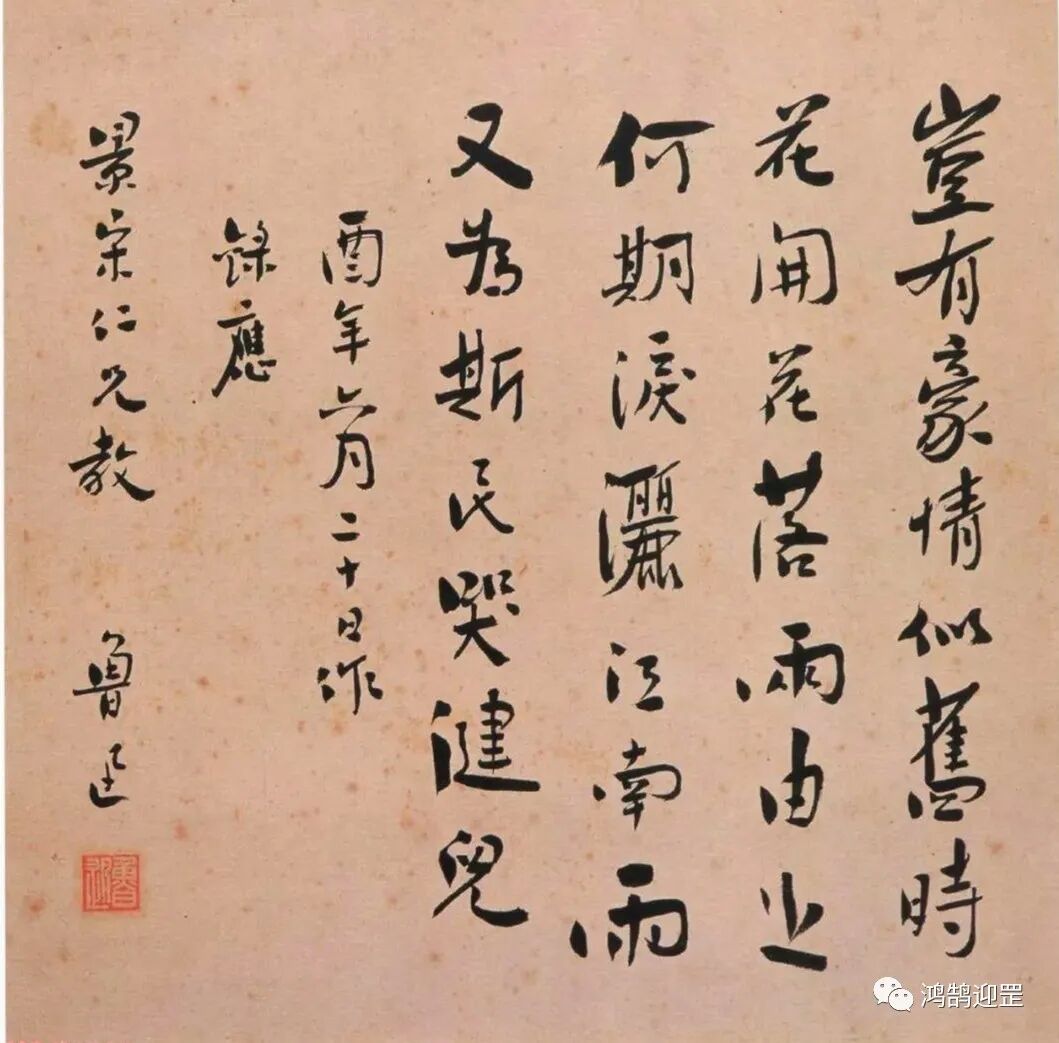 豈有豪情似舊時
花開花落兩由之
何期淚灑江南雨
又為斯民哭健兒
酉年六月二十日作
錄應
景宋仁兄教
魯迅
魯迅
鸿鹄迎罡